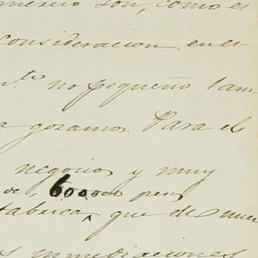 son, como es
consideracion en el
no pequeño tam
gozamos. Para el
negocios y muy
de 60000 pesos
fabrica que de nues
inmediaciones